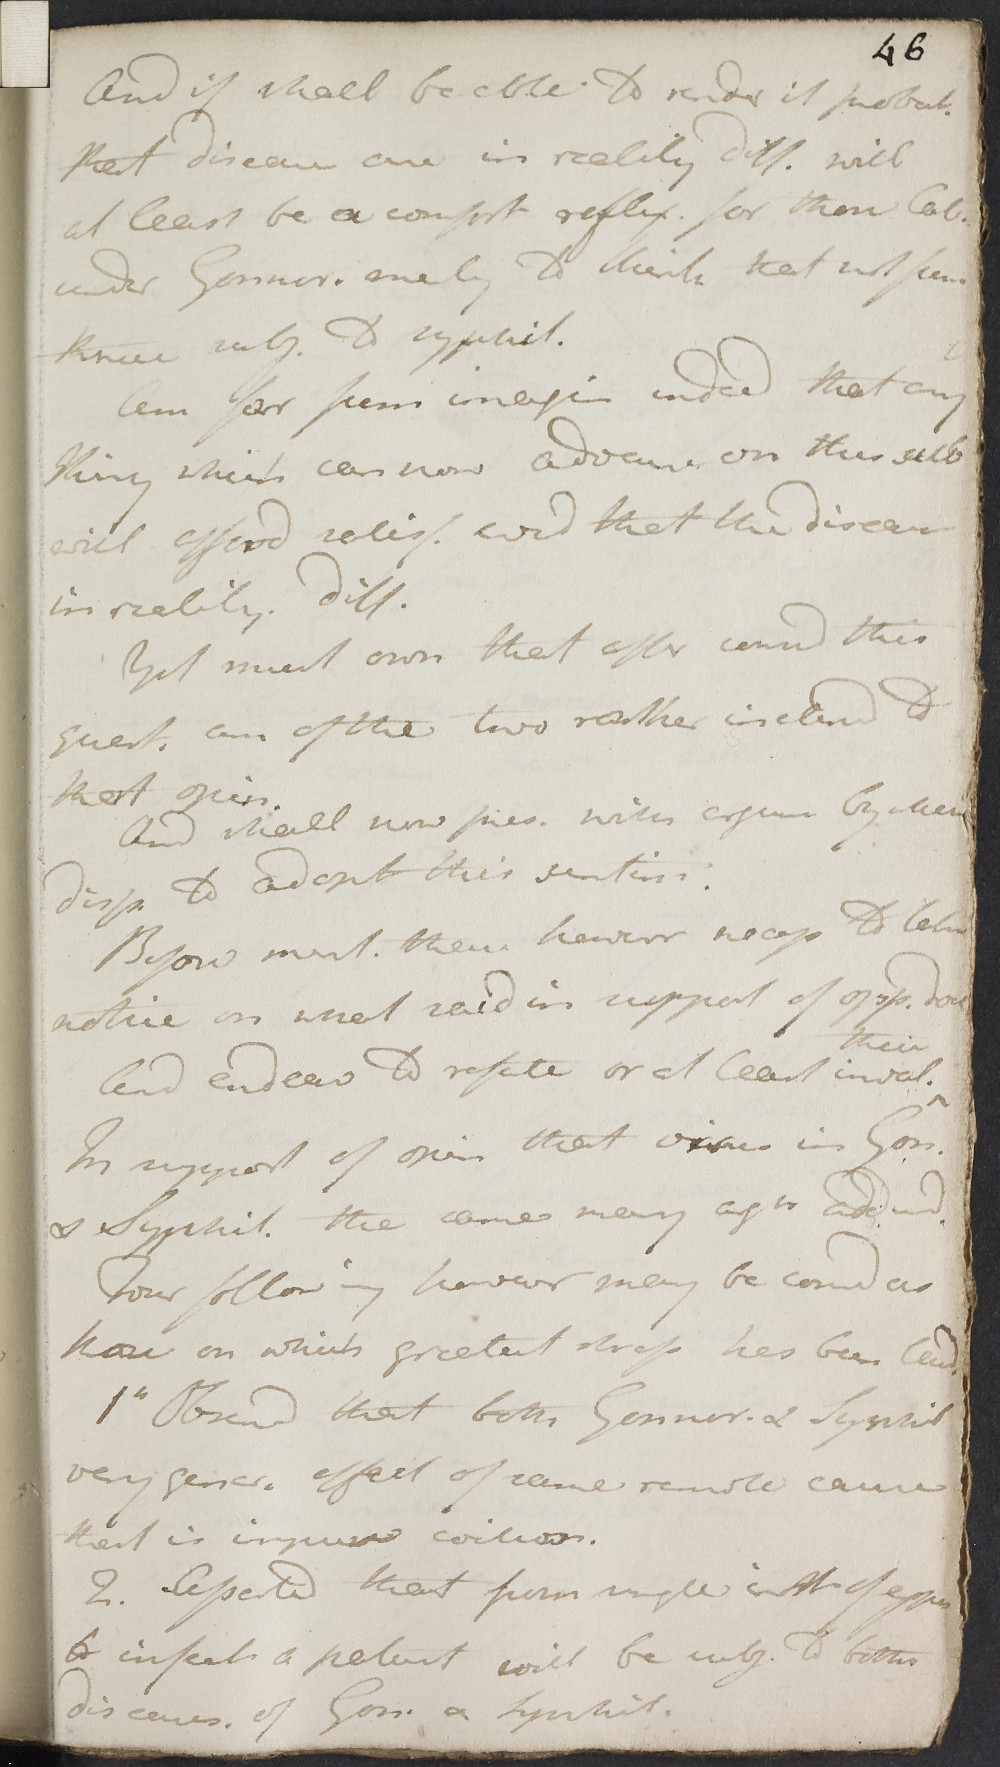 46
And if shall be able to render it probab.
that disease are in reality diff. will
at least be a comfort reflex. for those lab.
under Gonnor. merely to think that not from
thence subj. to syphil.
Am far from imagin indeed that any
thing which can now advance on this sub
will afford satisf. evid that the disease
in reality. diff.
Yet must own that after consid this
quest. am of the two rather inclined to
that opin.
And shall now pres. with argum by when
disp. to adopt this sentim.
Before must. there however necess to take
notice on what said in support of opp. doct
And endeav to refute or at least inval.
their
In support of opin that virus in Gon.
& Syphil. the same many agts adduced.
Four following however may be consid as
those on which greatest stress has been laid.
1st Observed that both Gonnor. & Syphil
very gener. effect of same remote cause
that is impure coition.
2. Asserted that from single instt of expos
to infect a patient will be subj. to both
diseases. of Gon. & Syphil.